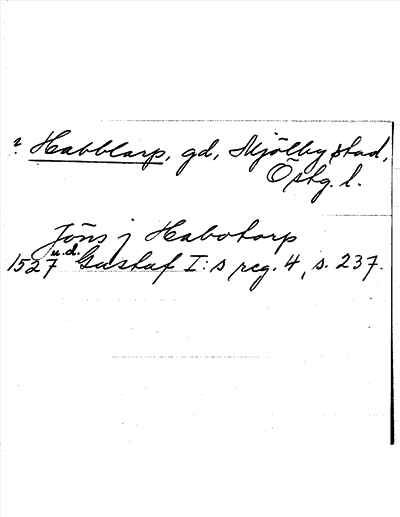 ? Habblarp, gd, Mjölby stad,
Östg. l.
Jöns j Habotorp
u.d.
1527 Gustaf I:s reg. 4, s. 237.